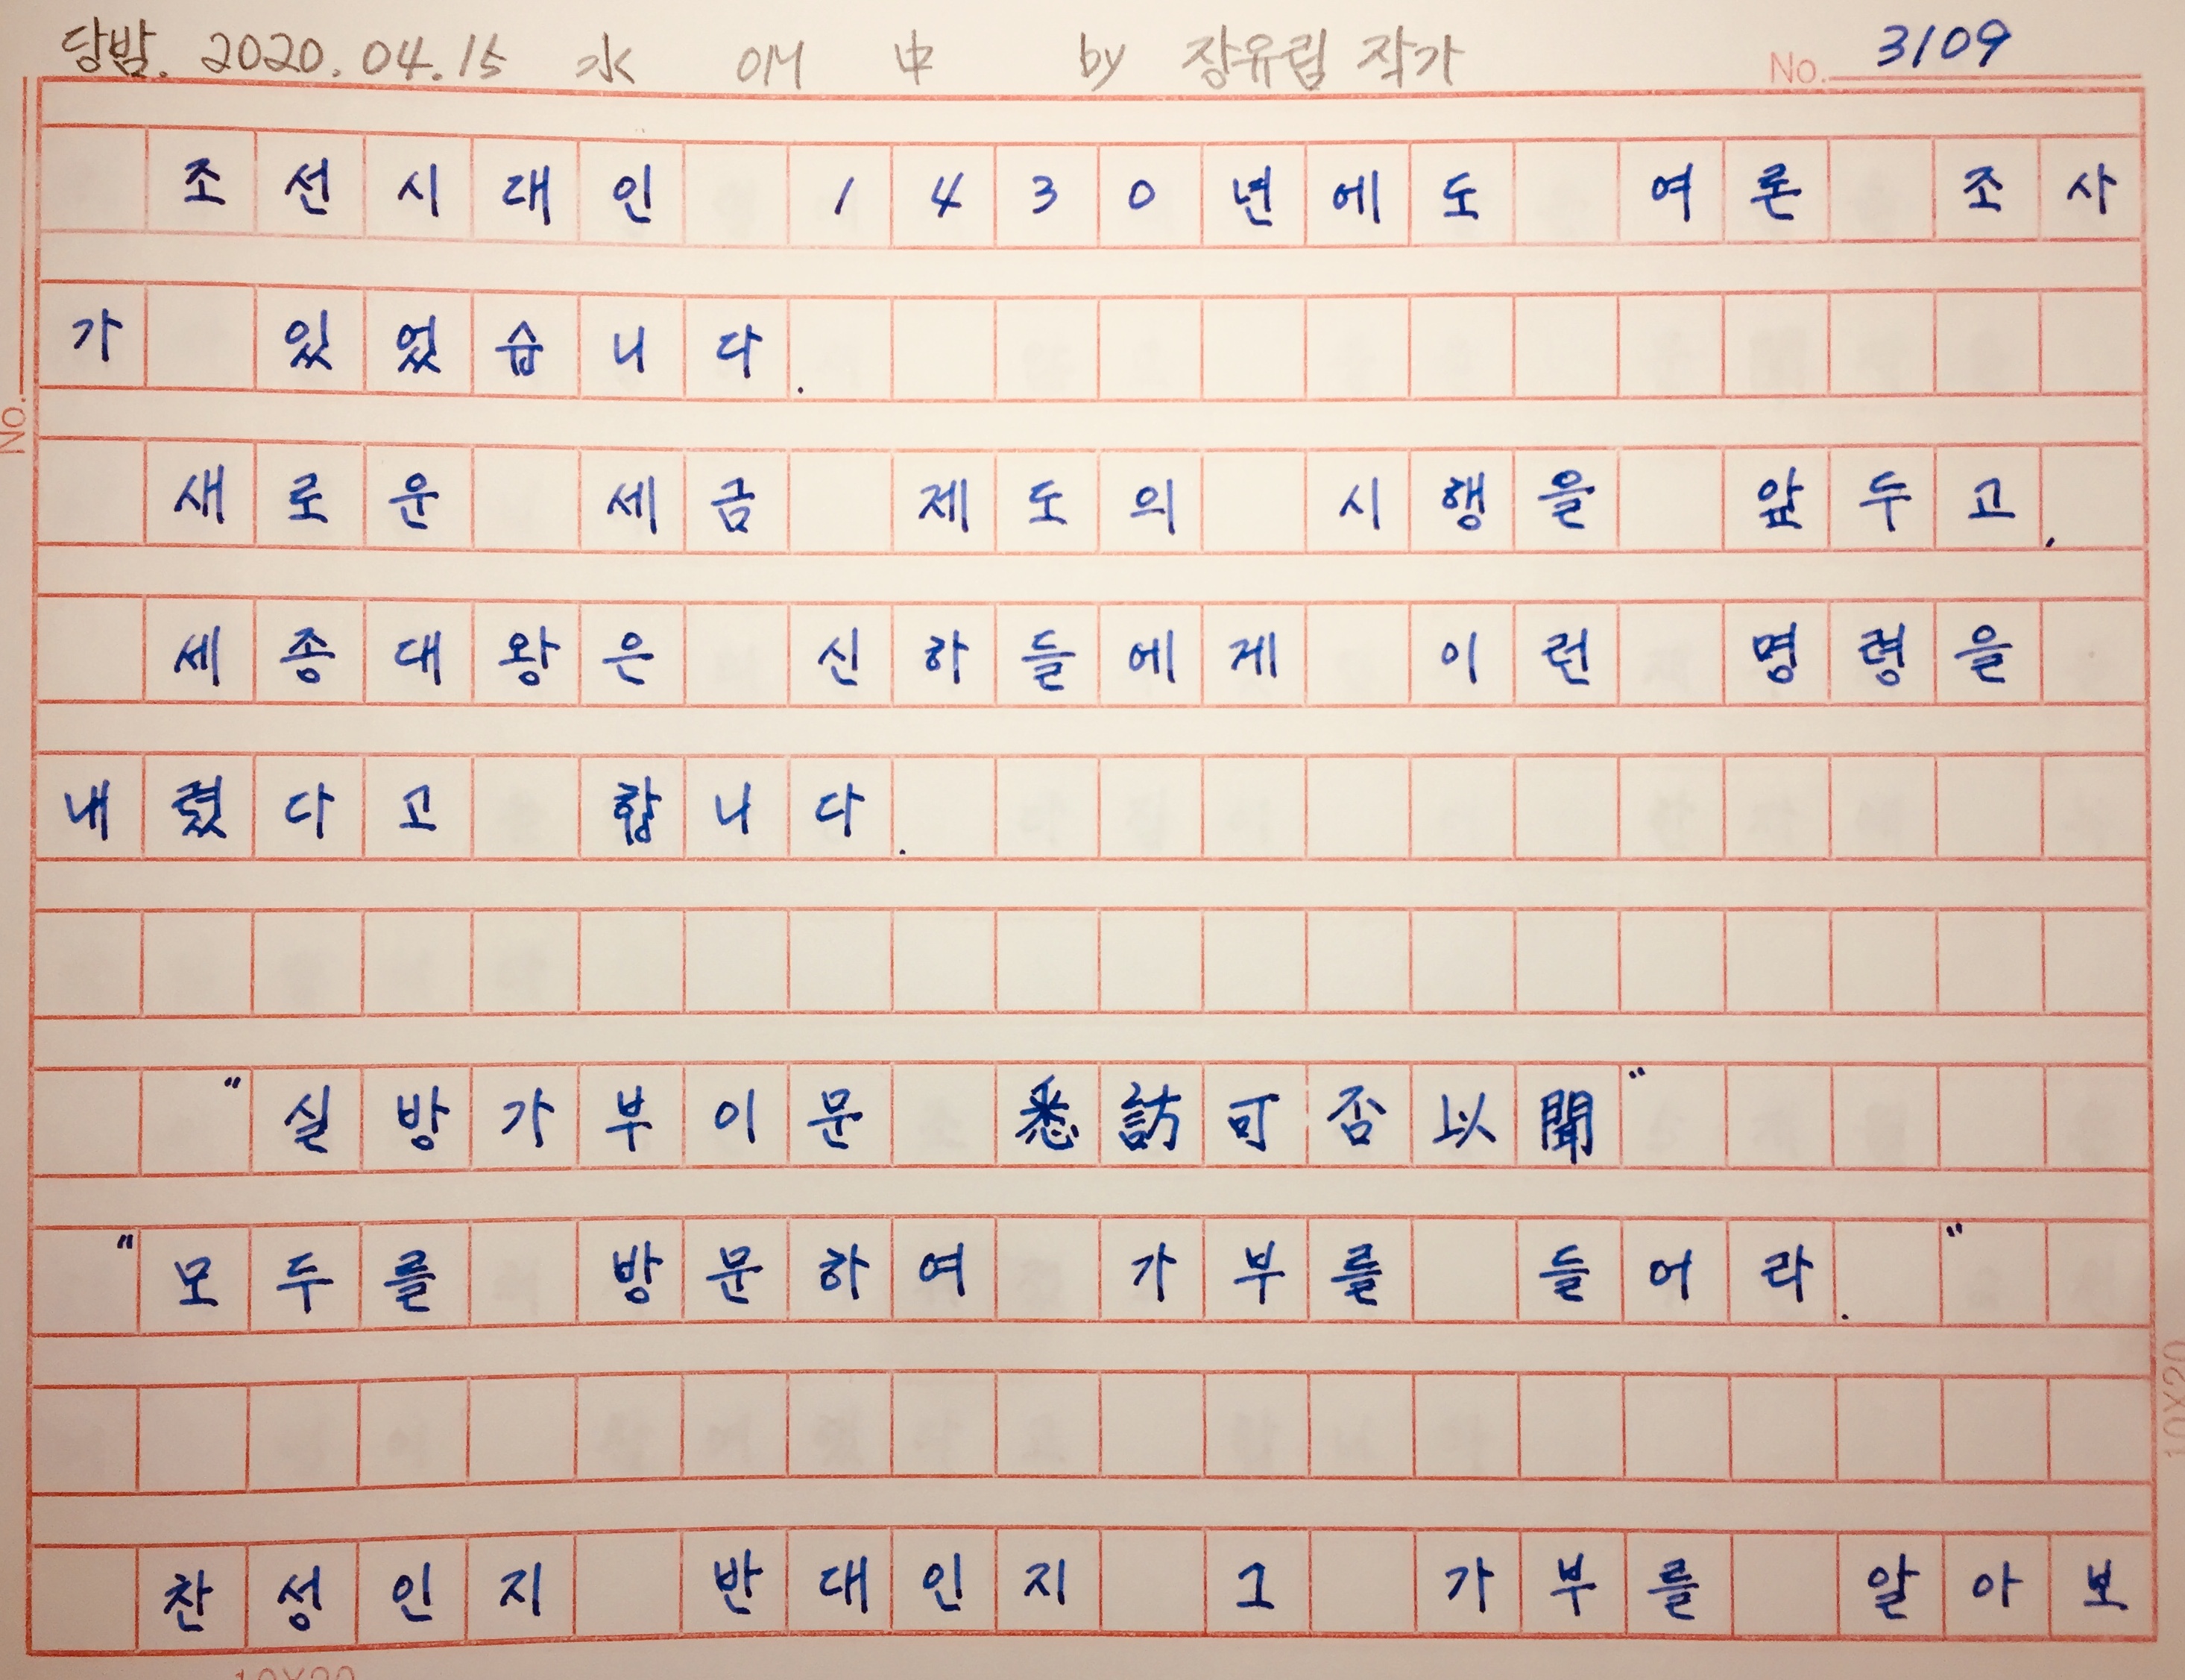 당밤. 2020.04.15 水 에 中 by 장유림 작가
No. 3109
조선시대인 1430년에도 여론 조사
가 있었습니다.
새로운 세금 제도의 시행을 앞두고,
세종대왕은 신하들에게 이런 명령을
내렸다고 합니다.
"실방가부이문 悉訪可否以聞"
"모두를 방문하여 가부를 들어라."
찬성인지 반대인지 그 가부를 알아보
No.
10X20
10X20